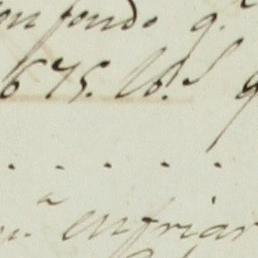 fondo q.
675. lb.s q
. . . . .
a enfriar